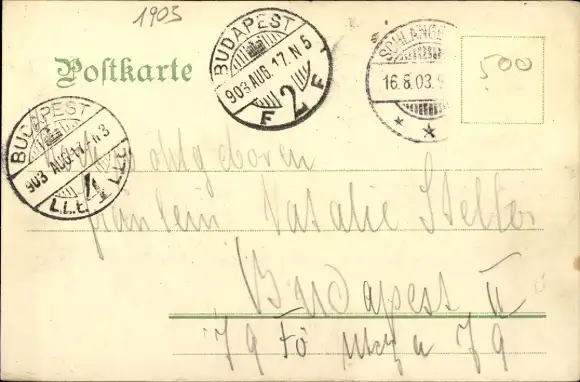 1903
Postkarte
BUDAPEST
903 AUG. 17. N 5
F 2 F
SCHLANGE
16.8.03.
500
BUDAPEST
903 AUG. 17. N 3
Wohlgeboren
Fräulein Natalie Steller
Budapest II
79 Fő utcza 79